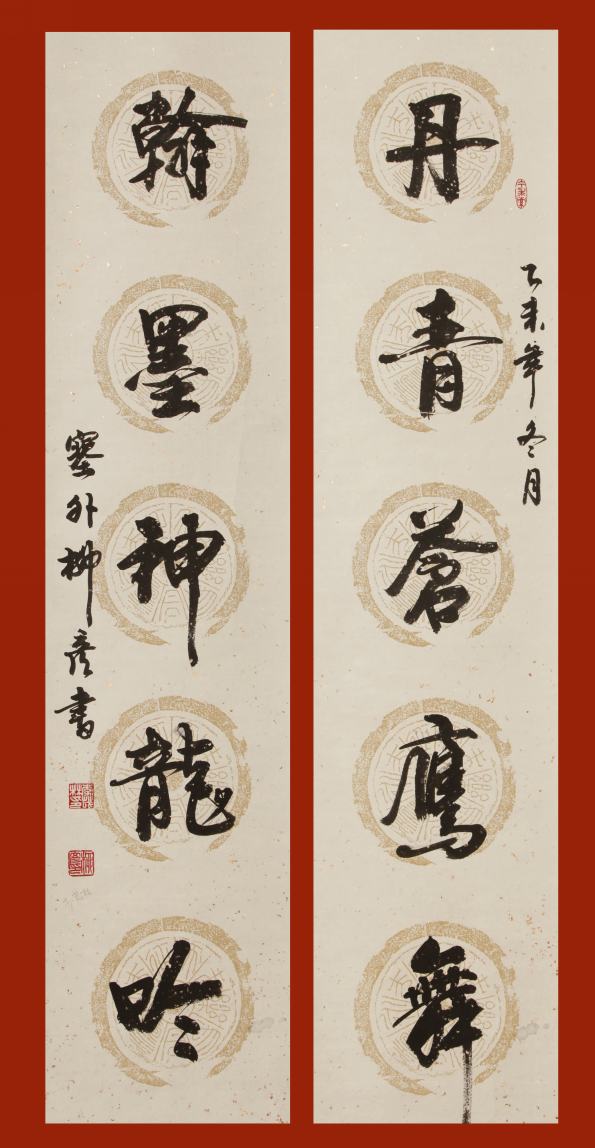 丹青蒼鷹舞
乙未年冬月
翰墨神龍吟
塞外柳彥書